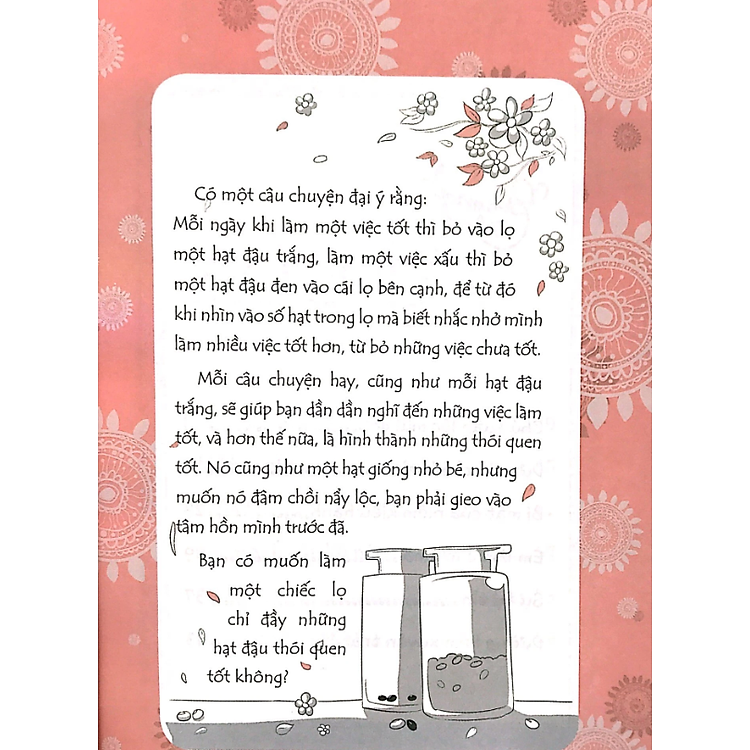 Có một câu chuyện đại ý rằng:
Mỗi ngày khi làm một việc tốt thì bỏ vào lọ
một hạt đậu trắng, làm một việc xấu thì bỏ
một hạt đậu đen vào cái lọ bên cạnh, để từ đó
khi nhìn vào số hạt trong lọ mà biết nhắc nhở mình
làm nhiều việc tốt hơn, từ bỏ những việc chưa tốt.
Mỗi câu chuyện hay, cũng như mỗi hạt đậu
trắng, sẽ giúp bạn dần dần nghĩ đến những việc làm
tốt, và hơn thế nữa, là hình thành những thói quen
tốt. Nó cũng như một hạt giống nhỏ bé, nhưng
muốn nó đậm chồi nẩy lộc, bạn phải gieo vào
tâm hồn mình trước đã.
Bạn có muốn làm
một chiếc lọ
chỉ đầy những
hạt đậu thói quen
tốt không?